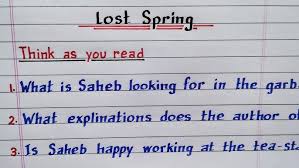 Lost Spring
Think as you read
1. What is Saheb looking for in the garb
2. What explinations does the author of
3. Is Saheb happy working at the tea-st